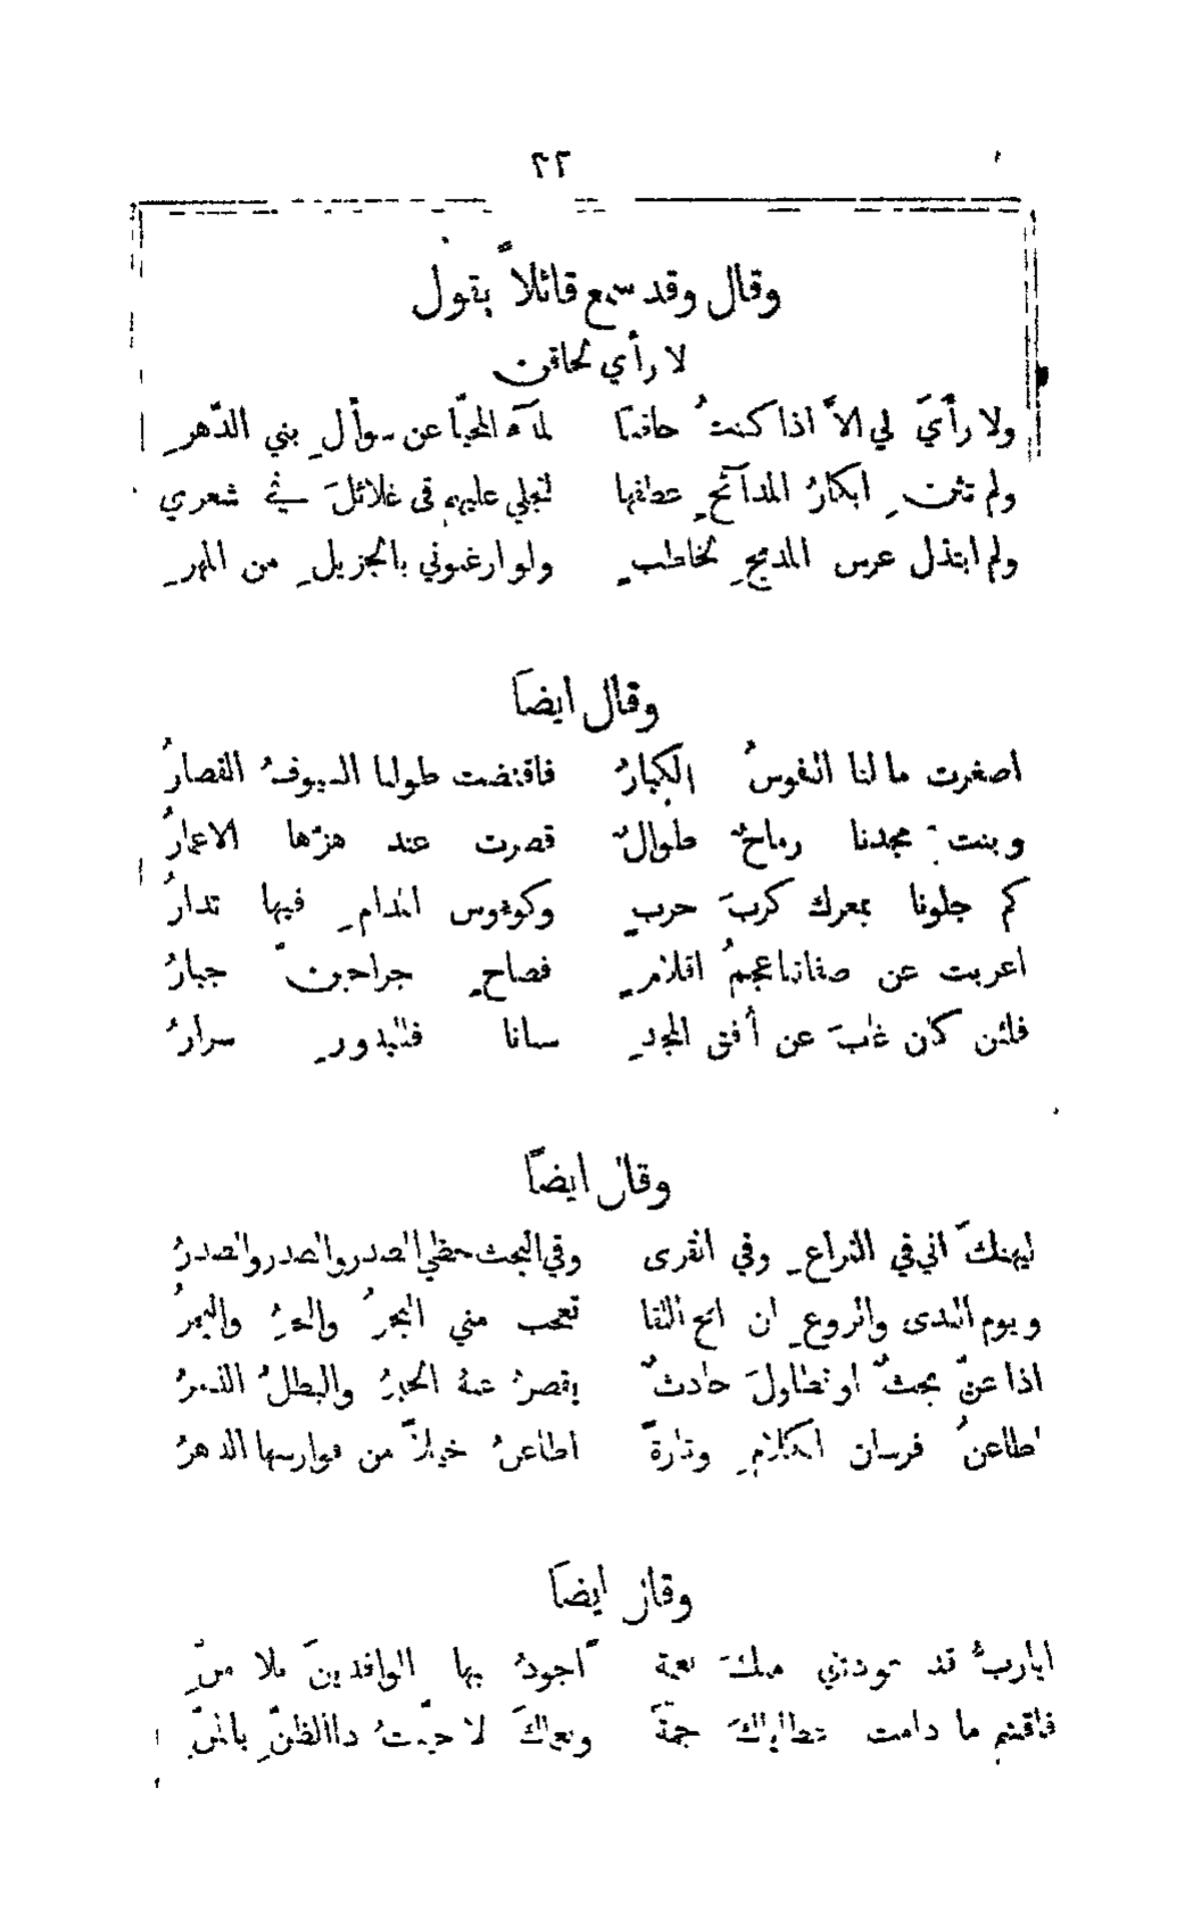 ٢٢
وقال وقد سمع قائلاً يقول
لا رأي لحاقن
ولا رأيَ لي الاَّ اذا كنتُ حاقنا لماء المحيّا عن سوأالِ بني الدّهرِ
ولم تثنِ ابكارُ المدآئحِ عطفها لتجلي عليهم في غلائلَ في شعري
ولم ابتذل عرس المديحِ لخاطبٍ ولو ارغبوني بالجزيلِ من المهرِ
وقال ايضاً
اصغرت مالنا النفوسُ الكبارُ فاقتضت طولها السيوفُ القصارُ
وبنت مجدنا رماحٌ طوالٌ قصرت عند هزّها الاعمارُ
كم جلونا بمعرك كربَ حربٍ وكوءوس المدامِ فيها تدارُ
اعربت عن صفاتنا عجمُ اقلامٍ فصاحٍ جراحهنّ جبارُ
فلئن كان غابَ عن أفق المجدِ سنانا فللبدورِ سرارُ
وقال ايضاً
ليهنكَ اني في القراعِ وفي القرى وفي البحث حظي الصدر والصدر والصدرُ
ويوم الندى والروعِ ان ابح اللقا تعجب مني البحرُ والحرُ والبحرُ
اذا عنّ بحثٌ او تطاولَ حادثٌ يقصرُ عنهُ الحبرُ والبطلُ الذمرُ
اطاعنُ فرسان الكلامِ وتارةً اطاعنُ خيلاً من فوارسها الدهرُ
وقال ايضاً
ايا ربُّ قد عودتني منكَ نعمة اجودُ بها الوافدينَ بلا منِّ
فاقسم ما دامت عطاياكَ جمةً ونعماكَ لا خيّبتُ ذا الظنِّ بالمنِّ